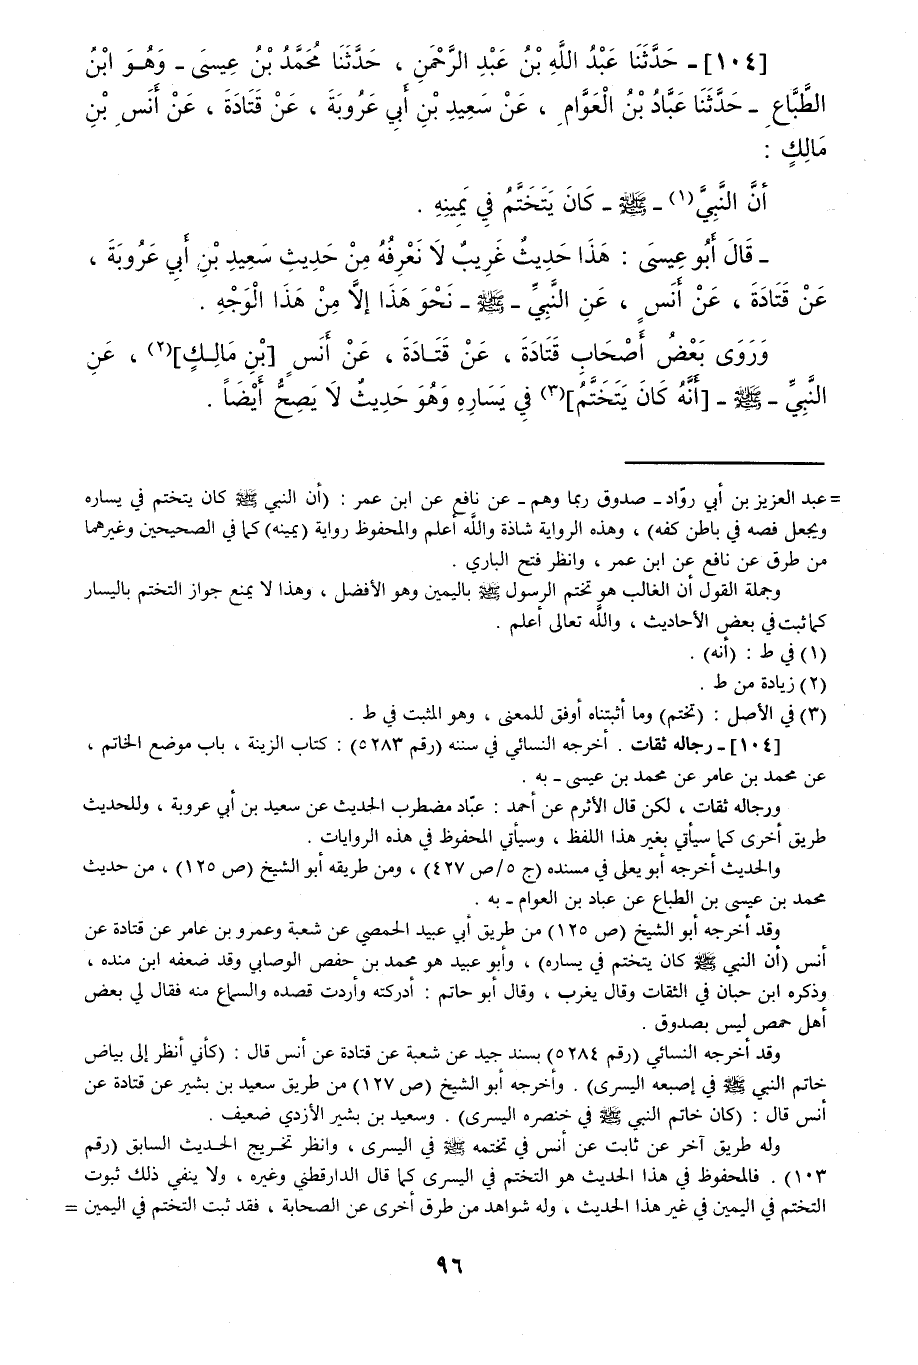 [١٠٤] ـ حَدَّثَنَا عَبْدُ اللَّهِ بْنُ عَبْدِ الرَّحْمَنِ ، حَدَّثَنَا مُحَمَّدُ بْنُ عِيسَى ـ وَهُوَ ابْنُ
الطَّبَّاعِ ـ حَدَّثَنَا عَبَّادُ بْنُ الْعَوَّامِ ، عَنْ سَعِيدِ بْنِ أَبِي عَرُوبَةَ ، عَنْ قَتَادَةَ ، عَنْ أَنَسِ بْنِ
مَالِكٍ :
أَنَّ النَّبِيَّ(١) ـ ﷺ ـ كَانَ يَتَخَتَّمُ فِي يَمِينِهِ .
ـ قَالَ أَبُو عِيسَى : هَذَا حَدِيثٌ غَرِيبٌ لَا نَعْرِفُهُ مِنْ حَدِيثِ سَعِيدِ بْنِ أَبِي عَرُوبَةَ ،
عَنْ قَتَادَةَ ، عَنْ أَنَسٍ ، عَنِ النَّبِيِّ ـ ﷺ ـ نَحْوَ هَذَا إِلَّا مِنْ هَذَا الْوَجْهِ .
وَرَوَى بَعْضُ أَصْحَابِ قَتَادَةَ ، عَنْ قَتَادَةَ ، عَنْ أَنَسٍ [بْنِ مَالِكٍ](٢) ، عَنِ
النَّبِيِّ ـ ﷺ ـ [أَنَّهُ كَانَ يَتَخَتَّمُ](٣) فِي يَسَارِهِ وَهُوَ حَدِيثٌ لَا يَصِحُّ أَيْضَاً .
= عبد العزيز بن أبي روّاد ـ صدوق ربما وهم ـ عن نافع عن ابن عمر : (أن النبي ﷺ كان يتختم في يساره
ويجعل فصه في باطن كفه) ، وهذه الرواية شاذة والله أعلم والمحفوظ رواية (يمينه) كما في الصحيحين وغيرهما
من طرق عن نافع عن ابن عمر ، وانظر فتح الباري .
وجملة القول أن الغالب هو تختم الرسول ﷺ باليمين وهو الأفضل ، وهذا لا يمنع جواز التختم باليسار
كما ثبت في بعض الأحاديث ، والله تعالى أعلم .
(١) في ط : (أنه) .
(٢) زيادة من ط .
(٣) في الأصل : (تختم) وما أثبتناه أوفق للمعنى ، وهو المثبت في ط .
[١٠٤] ـ رجاله ثقات . أخرجه النسائي في سننه (رقم ٥٢٨٣) : كتاب الزينة ، باب موضع الخاتم ،
عن محمد بن عامر عن محمد بن عيسى ـ به .
ورجاله ثقات ، لكن قال الأثرم عن أحمد : عبّاد مضطرب الحديث عن سعيد بن أبي عروبة ، وللحديث
طريق أخرى كما سيأتي بغير هذا اللفظ ، وسيأتي المحفوظ في هذه الروايات .
والحديث أخرجه أبو يعلى في مسنده (ج ٥/ص ٤٢٧) ، ومن طريقه أبو الشيخ (ص ١٢٥) ، من حديث
محمد بن عيسى بن الطباع عن عباد بن العوام ـ به .
وقد أخرجه أبو الشيخ (ص ١٢٥) من طريق أبي عبيد الحمصي عن شعبة وعمرو بن عامر عن قتادة عن
أنس (أن النبي ﷺ كان يتختم في يساره) ، وأبو عبيد هو محمد بن حفص الوصابي وقد ضعفه ابن منده ،
وذكره ابن حبان في الثقات وقال يغرب ، وقال أبو حاتم : أدركته وأردت قصده والسماع منه فقال لي بعض
أهل حمص ليس بصدوق .
وقد أخرجه النسائي (رقم ٥٢٨٤) بسند جيد عن شعبة عن قتادة عن أنس قال : (كأني أنظر إلى بياض
خاتم النبي ﷺ في إصبعه اليسرى) . وأخرجه أبو الشيخ (ص ١٢٧) من طريق سعيد بن بشير عن قتادة عن
أنس قال : (كان خاتم النبي ﷺ في خنصره اليسرى) . وسعيد بن بشير الأزدي ضعيف .
وله طريق آخر عن ثابت عن أنس في تختمه ﷺ في اليسرى ، وانظر تخريج الحديث السابق (رقم
١٠٣) . فالمحفوظ في هذا الحديث هو التختم في اليسرى كما قال الدارقطني وغيره ، ولا ينفي ذلك ثبوت
التختم في اليمين في غير هذا الحديث ، وله شواهد من طرق أخرى عن الصحابة ، فقد ثبت التختم في اليمين =
٩٦